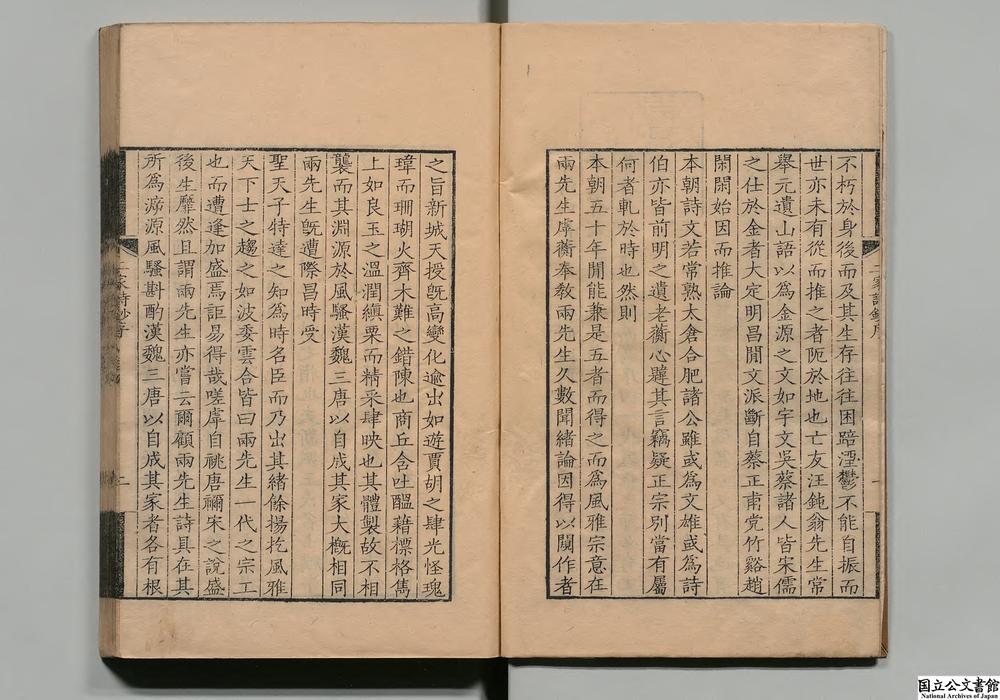 不朽於身後而及其生存往往困踣湮鬱不能自振而
世亦未有從而推之者阨於地也亡友汪鈍翁先生常
舉元遺山語以爲金源之文如宇文吳蔡諸人皆宋儒
之仕於金者大定明昌閒文派斷自蔡正甫党竹谿趙
閑閑始因而推論
本朝詩文若常熟太倉合肥諸公雖或爲文雄或爲詩
伯亦皆前明之遺老蘅心韙其言竊疑正宗別當有屬
何者軌於時也然則
本朝五十年閒能兼是五者而得之而爲風雅宗意在
兩先生虖蘅奉教兩先生久數聞緒論因得以闚作者
之旨新城天授旣高變化逾出如遊賈胡之肆光怪瑰
瑋而珊瑚火齊木難之錯陳也商丘含吐醞藉標格雋
上如良玉之溫潤縝栗而精采肆映也其體製故不相
襲而其淵源於風騷漢魏三唐以自成其家大槪相同
兩先生旣遭際昌時受
聖天子特達之知爲時名臣而乃出其緒餘揚扢風雅
天下士之趨之如波委雲合皆曰兩先生一代之宗工
也而遭逢加盛焉詎易得哉嗟虖自祧唐禰宋之說盛
後生靡然且謂兩先生亦嘗云爾顧兩先生詩具在其
所爲泝源風騷斟酌漢魏三唐以自成其家者各有根
二家詩鈔序
一
二家詩鈔序
二
国立公文書館
National Archives of Japan